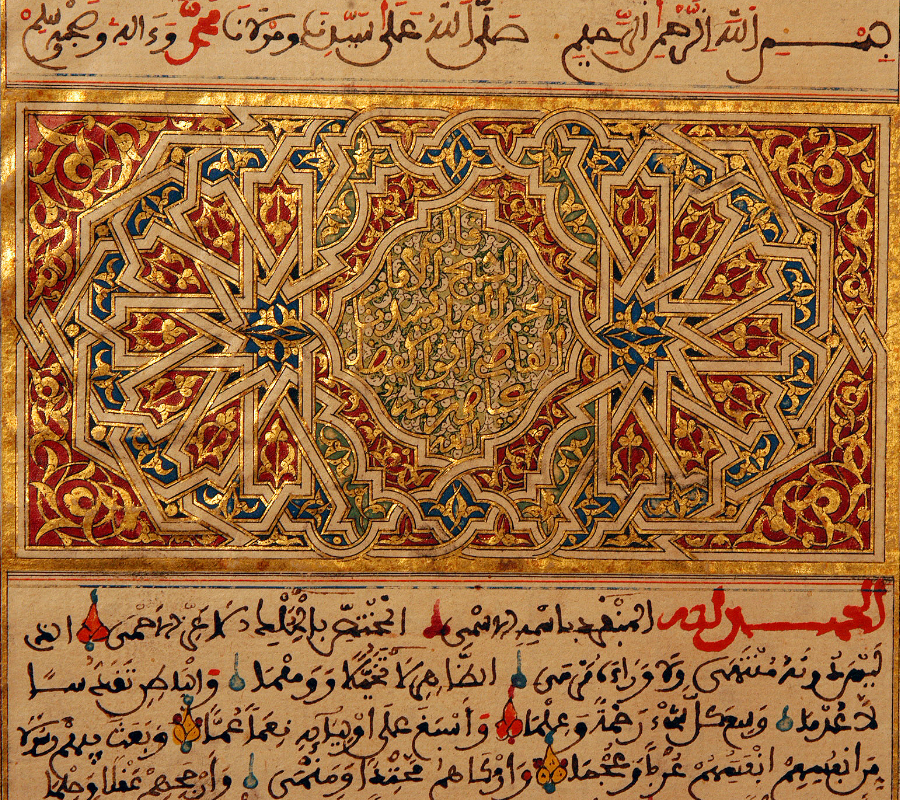 بسم الله الرحمن الرحيم صلى الله على سيدنا ومولانا محمد وءاله وصحبه وسلم
قال
الشيخ الامام
القاضي ابو الفضل
عياض رحمه
الله
الحمد لله المنفرد باسمه الاسمى المختص بالملك الاعز الاحمى الذي
ليس دونه منتهى ولا وراءه مرمى الظاهر لا تخيلا ووهما والباطن تقدسا
لا عدما وسع كل شيء رحمة وعلما واسبغ على اوليائه نعما عما وبعث فيهم رسولا
من انفسهم انفسهم عربا وعجما وازكاهم محتدا ومنمى وارجحهم عقلا وحلما